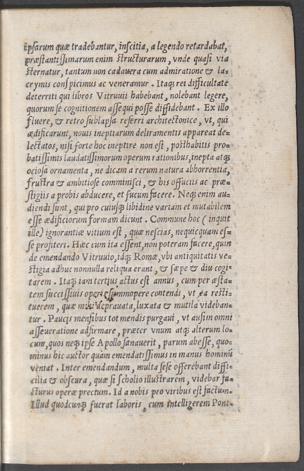 ipsarum quæ tradebantur, inscitia, a legendo retardabat,
præstantissimarum enim structurarum, vnde quasi via
sternatur, tantum non cadauera cum admiratione & la-
crymis conspicimus ac veneramur. Itaq; rei difficultate
deterriti qui libros Vitruuij habebant, nolebant legere,
quorum se cognitionem assequi posse diffidebant. Ex illo
fluere, & retro sublapsa referri architectonice, vt, qui
ædificarunt, nouis ineptiarum deliramentis appareat de-
lectatos, nisi forte hoc ineptire non est, posthabitis pro-
batissimis laudatissimorum operum rationibus, inepta atq;
ociosa ornamenta, ne dicam a rerum natura abhorrentia,
frustra & ambitiose comminisci, & his offucijs ac præ-
stigijs a probis abducere, et fucum facere. Neq; enim au-
diendi sunt, qui pro cuiusq; libidine variam et mutabilem
esse ædificiorum formam dicunt. Commune hoc (inquit
ille) ignorantiæ vitium est, quæ nescias, nequicquam es-
se profiteri. Hæc cum ita essent, non poteram facere, quin
de emendando Vitruuio, idq; Romæ, vbi antiquitatis ve-
stigia adhuc nonnulla reliqua erant, & sæpe & diu cogi-
tarem. Itaq; iam tertius actus est annus, cum per æsta-
tem successiuis operis summopere contendi, vt ea resti-
tuerem, quæ misere deprauata, luxata & mutila videban-
tur. Paucis mensibus tot mendis purgaui, vt ausim omni
asseueratione adfirmare, præter vnum atq; alterum lo-
cum, quos neq; ipse Apollo sanauerit, parum abesse, quo-
minus hic auctor quàm emendatissimus in manus hominũ
veniat. Inter emendandum, multa sese offerebant diffi-
cilia & obscura, quæ si scholio illustrarem, videbar fa-
cturus operæ precium. Id a nobis pro viribus est factum.
Illud quodcunq; fuerat laboris, cum intelligerem Pont-